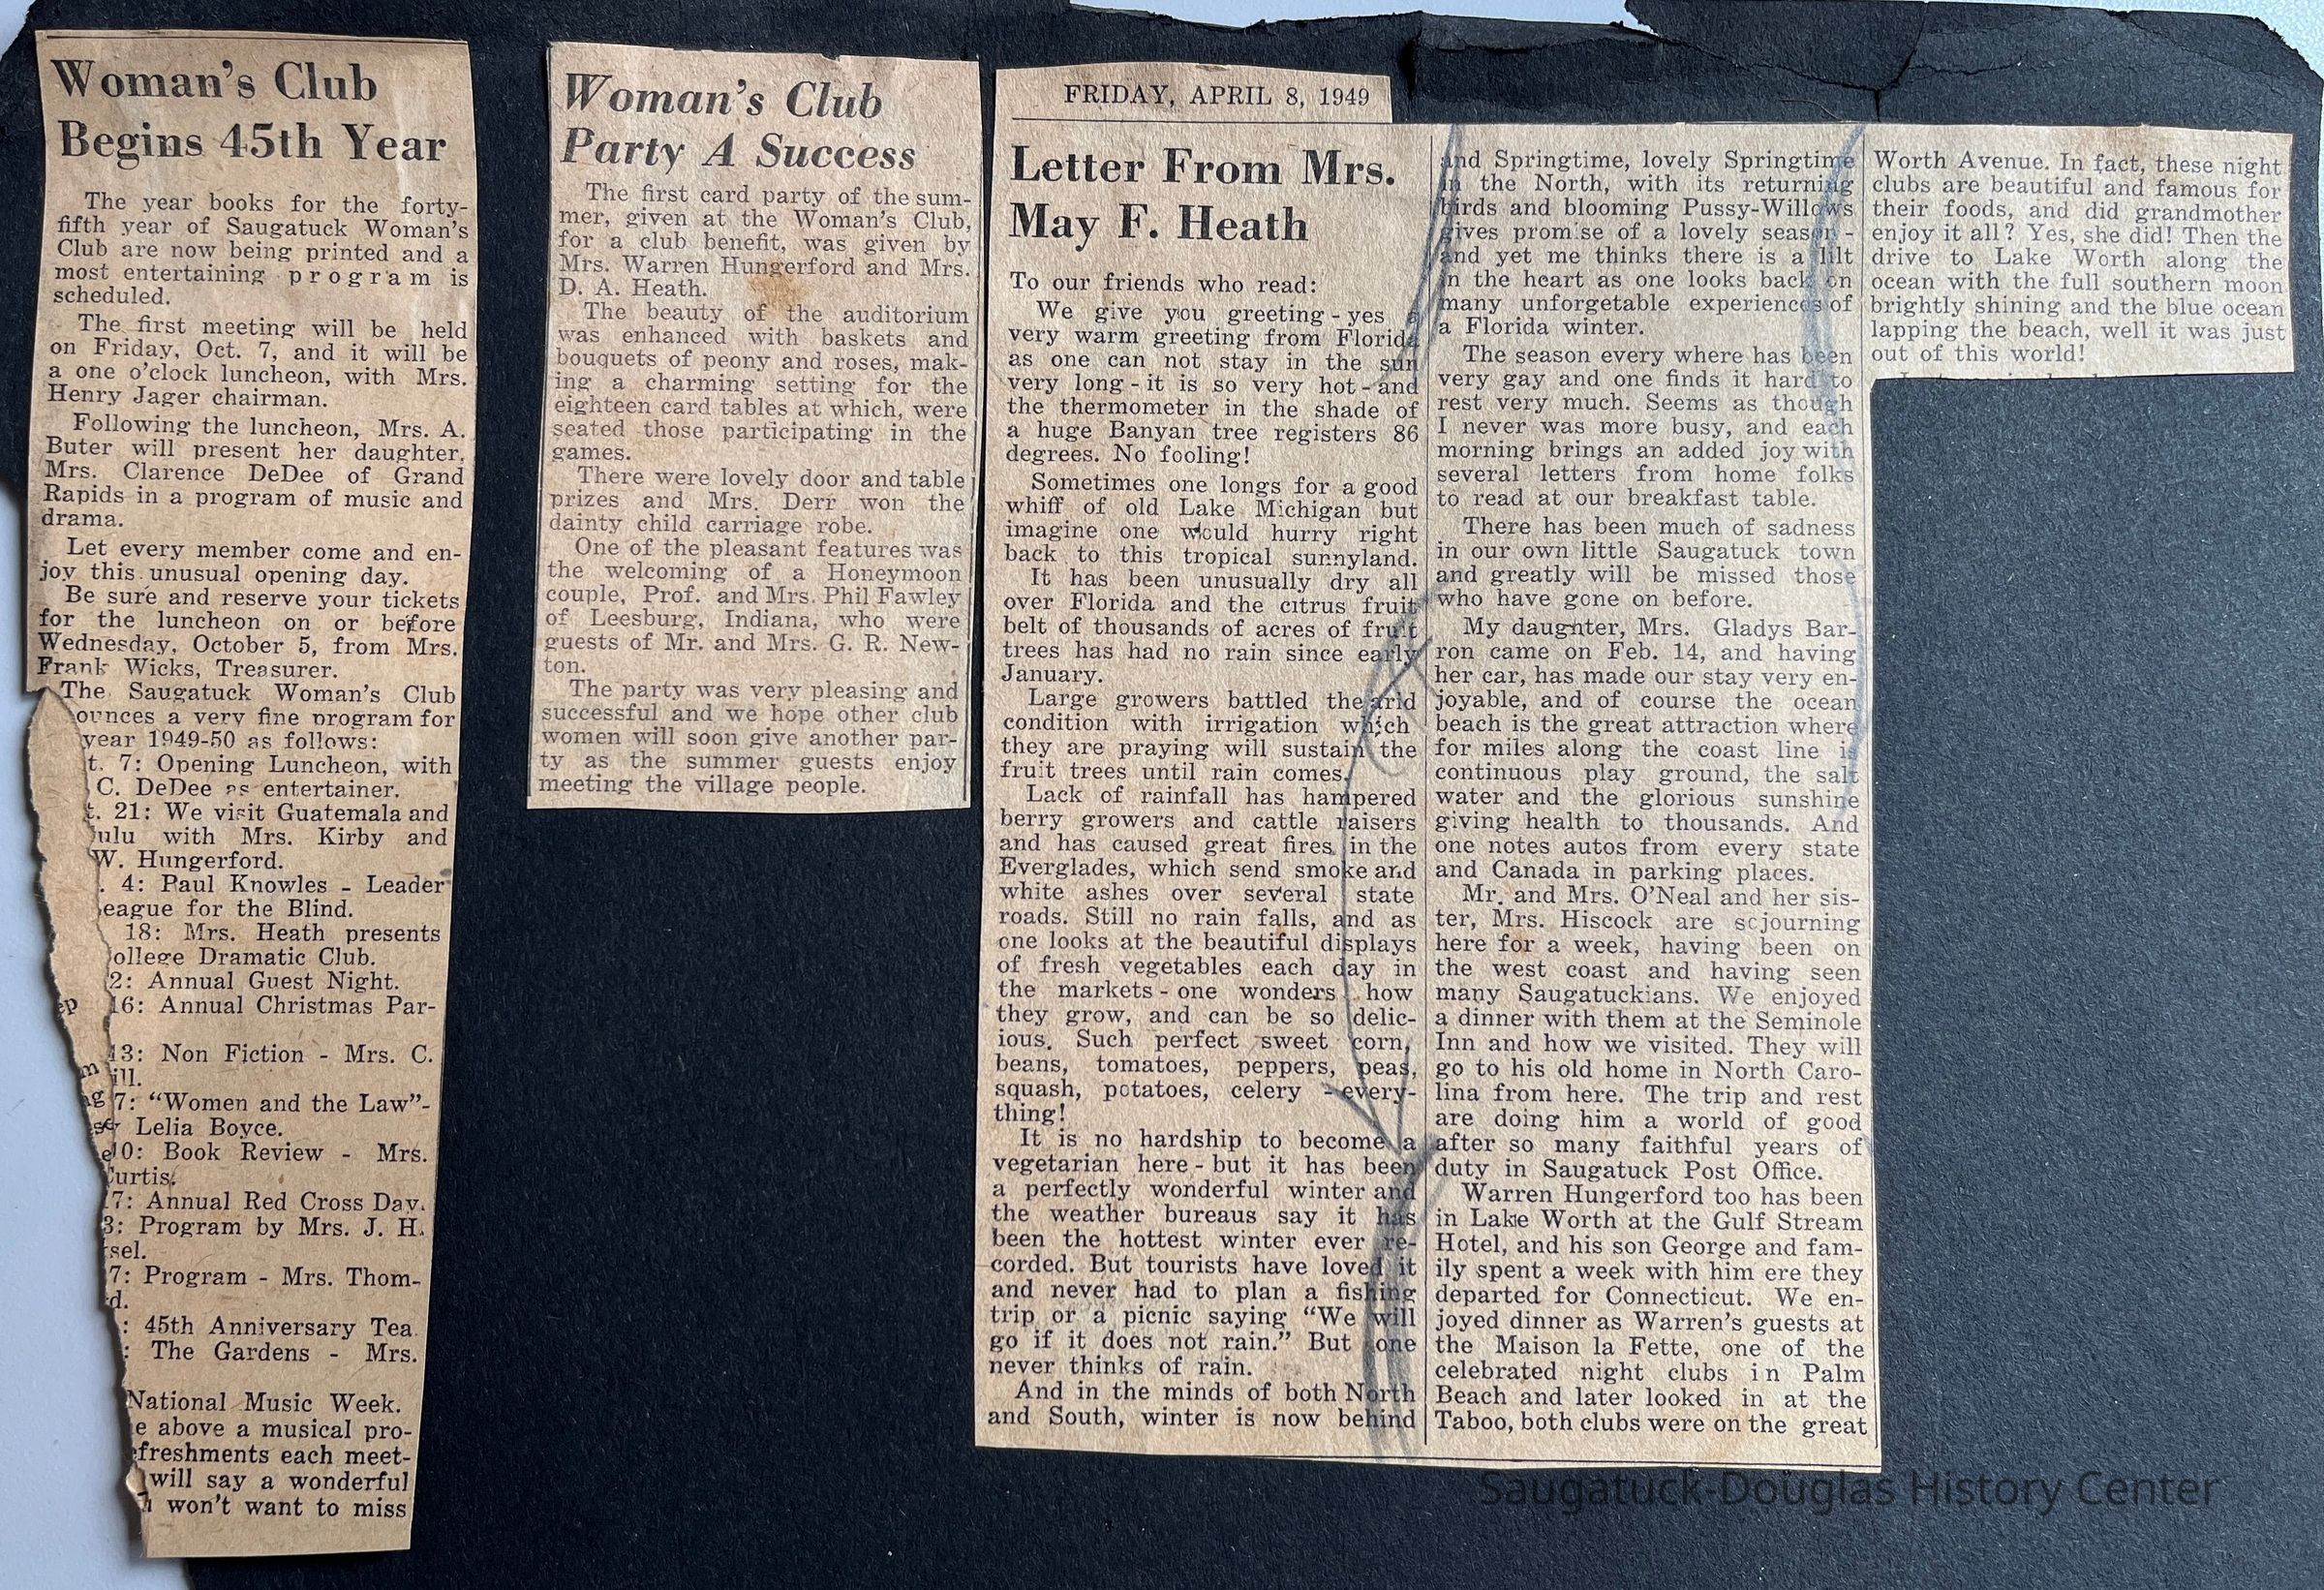 Woman's Club
Begins 45th Year
The year books for the forty-
fifth year of Saugatuck Woman's
Club are now being printed and a
most entertaining program is
scheduled.
The first meeting will be held
on Friday, Oct. 7, and it will be
a one o'clock luncheon, with Mrs.
Henry Jager chairman.
Following the luncheon, Mrs. A.
Buter will present her daughter,
Mrs. Clarence DeDee of Grand
Rapids in a program of music and
drama.
Let every member come and en-
joy this unusual opening day.
Be sure and reserve your tickets
for the luncheon on or before
Wednesday, October 5, from Mrs.
Frank Wicks, Treasurer.
The Saugatuck Woman's Club
ounces a very fine program for
year 1949-50 as follows:
t. 7: Opening Luncheon, with
C. DeDee as entertainer.
t. 21: We visit Guatemala and
ulu with Mrs. Kirby and
W. Hungerford.
. 4: Paul Knowles - Leader
eague for the Blind.
18: Mrs. Heath presents
ollege Dramatic Club.
2: Annual Guest Night.
16: Annual Christmas Par-
13: Non Fiction - Mrs. C.
ill.
7: "Women and the Law"-
Lelia Boyce.
10: Book Review - Mrs.
Curtis.
7: Annual Red Cross Day.
3: Program by Mrs. J. H.
sel.
7: Program - Mrs. Thom-
d.
: 45th Anniversary Tea.
: The Gardens - Mrs.
National Music Week.
e above a musical pro-
efreshments each meet-
will say a wonderful
won't want to miss
Woman's Club
Party A Success
The first card party of the sum-
mer, given at the Woman's Club,
for a club benefit, was given by
Mrs. Warren Hungerford and Mrs.
D. A. Heath.
The beauty of the auditorium
was enhanced with baskets and
bouquets of peony and roses, mak-
ing a charming setting for the
eighteen card tables at which, were
seated those participating in the
games.
There were lovely door and table
prizes and Mrs. Derr won the
dainty child carriage robe.
One of the pleasant features was
the welcoming of a Honeymoon
couple, Prof. and Mrs. Phil Fawley
of Leesburg, Indiana, who were
guests of Mr. and Mrs. G. R. New-
ton.
The party was very pleasing and
successful and we hope other club
women will soon give another par-
ty as the summer guests enjoy
meeting the village people.
FRIDAY, APRIL 8, 1949
Letter From Mrs.
May F. Heath
To our friends who read:
We give you greeting - yes a
very warm greeting from Florida
as one can not stay in the sun
very long - it is so very hot - and
the thermometer in the shade of
a huge Banyan tree registers 86
degrees. No fooling!
Sometimes one longs for a good
whiff of old Lake Michigan but
imagine one would hurry right
back to this tropical sunnyland.
It has been unusually dry all
over Florida and the citrus fruit
belt of thousands of acres of fruit
trees has had no rain since early
January.
Large growers battled the arid
condition with irrigation which
they are praying will sustain the
fruit trees until rain comes.
Lack of rainfall has hampered
berry growers and cattle raisers
and has caused great fires in the
Everglades, which send smoke and
white ashes over several state
roads. Still no rain falls, and as
one looks at the beautiful displays
of fresh vegetables each day in
the markets - one wonders how
they grow, and can be so delic-
ious. Such perfect sweet corn,
beans, tomatoes, peppers, peas,
squash, potatoes, celery - every-
thing!
It is no hardship to become a
vegetarian here - but it has been
a perfectly wonderful winter and
the weather bureaus say it has
been the hottest winter ever re-
corded. But tourists have loved it
and never had to plan a fishing
trip or a picnic saying "We will
go if it does not rain." But one
never thinks of rain.
And in the minds of both North
and South, winter is now behind
and Springtime, lovely Springtime
in the North, with its returning
birds and blooming Pussy-Willows
gives promise of a lovely season -
and yet me thinks there is a lilt
in the heart as one looks back on
many unforgetable experiences of
a Florida winter.
The season every where has been
very gay and one finds it hard to
rest very much. Seems as though
I never was more busy, and each
morning brings an added joy with
several letters from home folks
to read at our breakfast table.
There has been much of sadness
in our own little Saugatuck town
and greatly will be missed those
who have gone on before.
My daugnter, Mrs. Gladys Bar-
ron came on Feb. 14, and having
her car, has made our stay very en-
joyable, and of course the ocean
beach is the great attraction where
for miles along the coast line is
continuous play ground, the salt
water and the glorious sunshine
giving health to thousands. And
one notes autos from every state
and Canada in parking places.
Mr. and Mrs. O'Neal and her sis-
ter, Mrs. Hiscock are sojourning
here for a week, having been on
the west coast and having seen
many Saugatuckians. We enjoyed
a dinner with them at the Seminole
Inn and how we visited. They will
go to his old home in North Caro-
lina from here. The trip and rest
are doing him a world of good
after so many faithful years of
duty in Saugatuck Post Office.
Warren Hungerford too has been
in Lake Worth at the Gulf Stream
Hotel, and his son George and fam-
ily spent a week with him ere they
departed for Connecticut. We en-
joyed dinner as Warren's guests at
the Maison la Fette, one of the
celebrated night clubs in Palm
Beach and later looked in at the
Taboo, both clubs were on the great
Worth Avenue. In fact, these night
clubs are beautiful and famous for
their foods, and did grandmother
enjoy it all? Yes, she did! Then the
drive to Lake Worth along the
ocean with the full southern moon
brightly shining and the blue ocean
lapping the beach, well it was just
out of this world!
Saugatuck-Douglas History Center